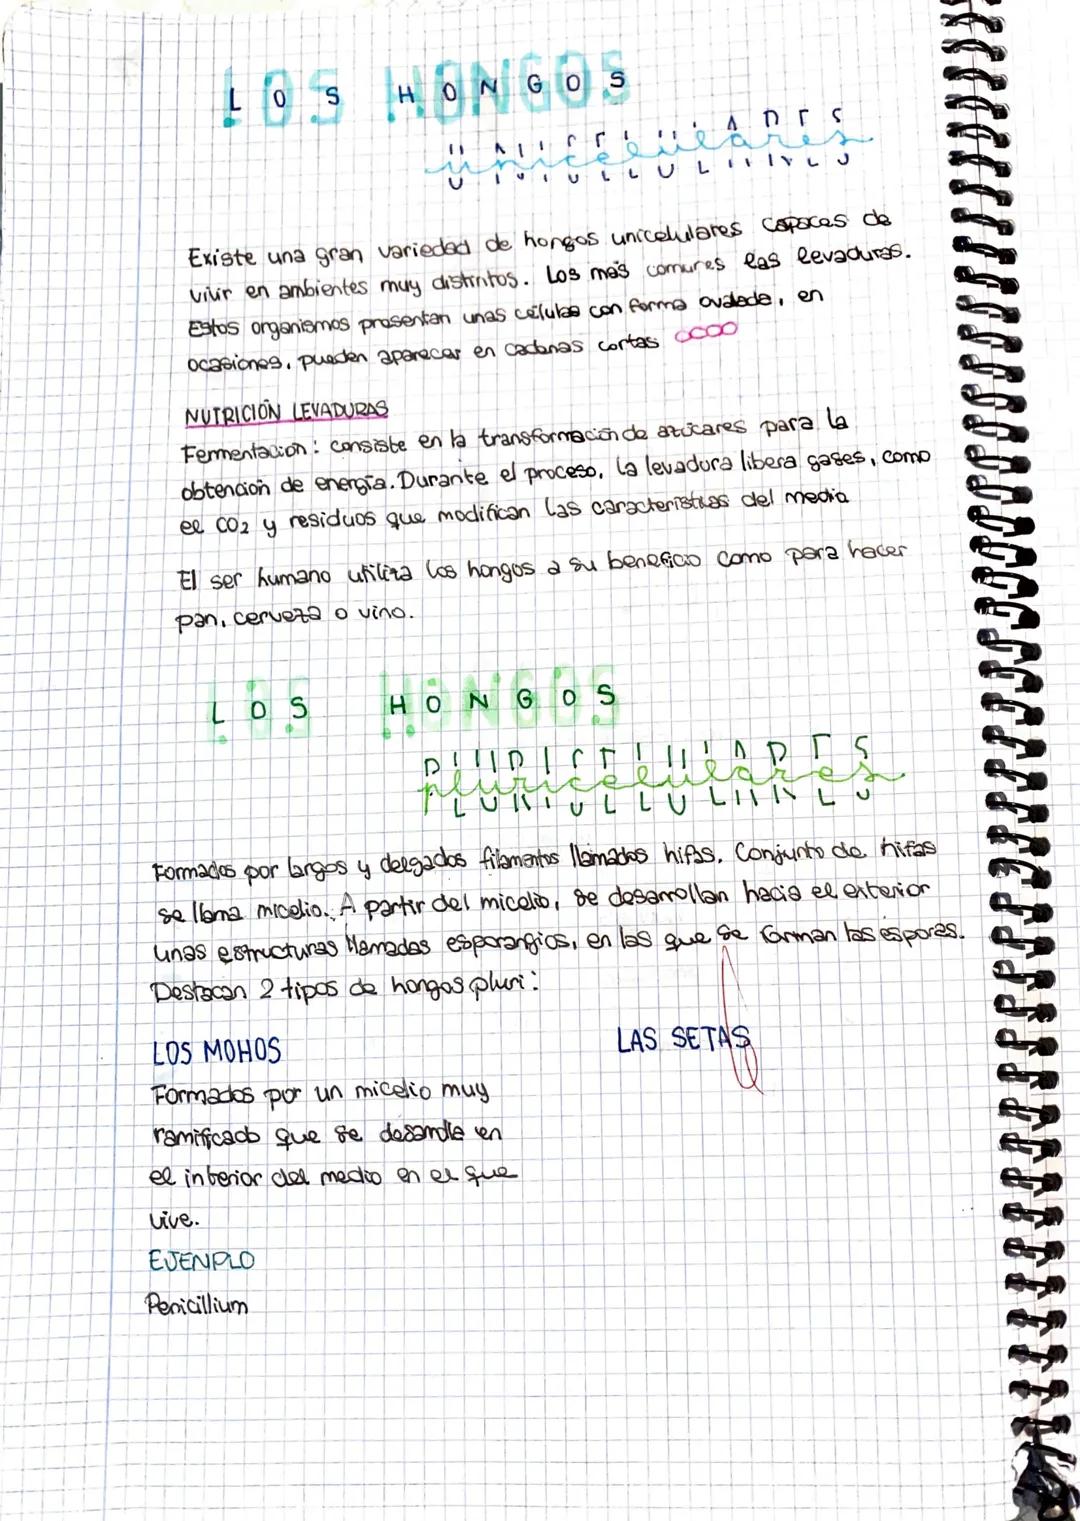 LOS HONGOS
unicelulares
Existe una gran variedad de hongos unicelulares capaces de
vivir en ambientes muy distintos. Los más comunes las levaduras.
Estos organismos presentan unas células con forma ovalada, en
ocasiones, pueden aparecer en cadenas cortas
NUTRICIÓN LEVADURAS
Fermentación: consiste en la transformación de azúcares para la
obtención de energía. Durante el proceso, la levadura libera gases, como
el CO2 y residuos que modifican las características del medio
El ser humano utiliza los hongos a su beneficio como para hacer
pan, cerveza o vino.
LOS HONGOS
pluricelulares
Formados por largos y delgados filamentos llamados hifas. Conjunto de hifas
se llama micelio. A partir del micelio, se desarrollan hacia el exterior
unas estructuras llamadas esporangios, en las que se forman las esporas.
Destacan 2 tipos de hongos pluri:
LOS MOHOS
LAS SETAS
Formados por un micelio muy
ramificado que se desarrolla en
el interior del medio en el que
vive.
EJENPLO
Penicillium